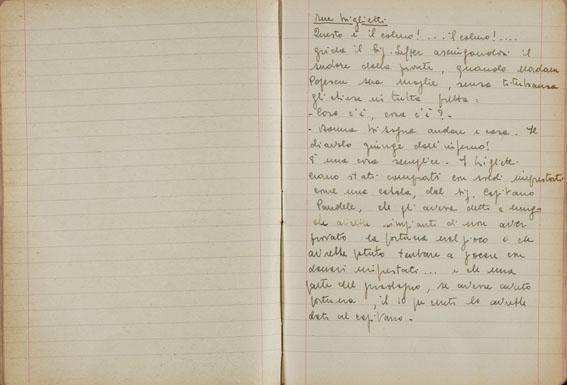 Due biglietti
Questo è il colmo! ... il colmo! ....
grida il Sig. Lefter asciugandosi il
sudore dalla fronte, quando Madam
Popescu sua moglie, senza titubanza
gli chiese in tutta fretta:
- Cosa c'è, cosa c'è? -
- bisogna andare a casa. Il
diavolo giunge dall'inferno!
È una cosa semplice. I
erano stati comprati con soldi imprestati
come una cabala, dal Sig. Capitano
Pandele, che gli aveva detto a lungo
che avrebbe rimpianti di non aver
provato la fortuna nel gioco e che
avrebbe potuto tentare a giocare con
denari imprestati... e che una
parte del guadagno, se avesse avuto
fortuna, il 10 per cento lo avrebbe
dato al capitano -